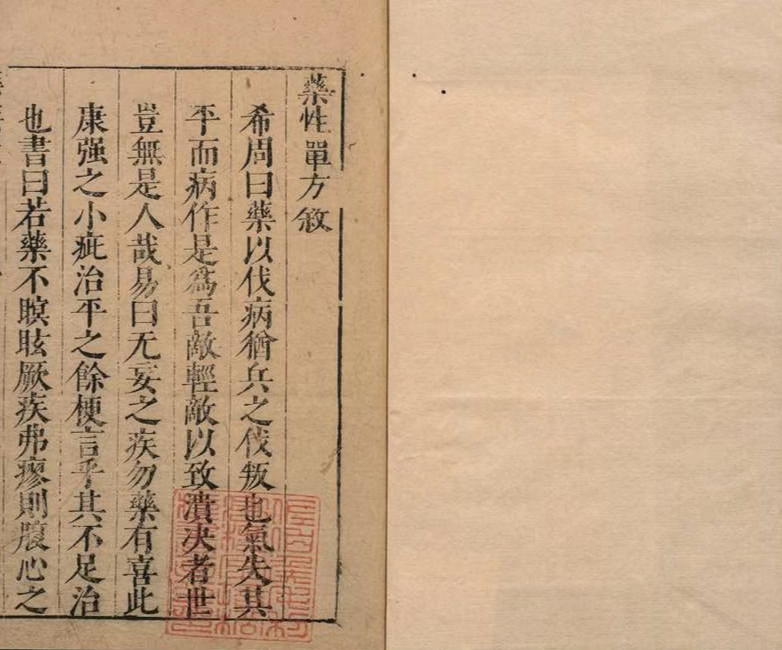 藥性單方敘
希周曰藥以伐病猶兵之伐叛也氣失其
平而病作是為吾敵輕敵以致潰決者世
豈無是人哉易曰无妄之疾勿藥有喜此
康强之小疵治平之餘梗言乎其不足治
也書曰若藥不瞑眩厥疾弗瘳則腹心之